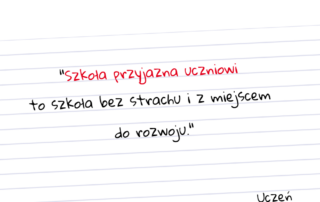 "Szkoła przyjazna uczniowi
to szkoła bez strachu i z miejscem
do rozwoju."
Uczeń